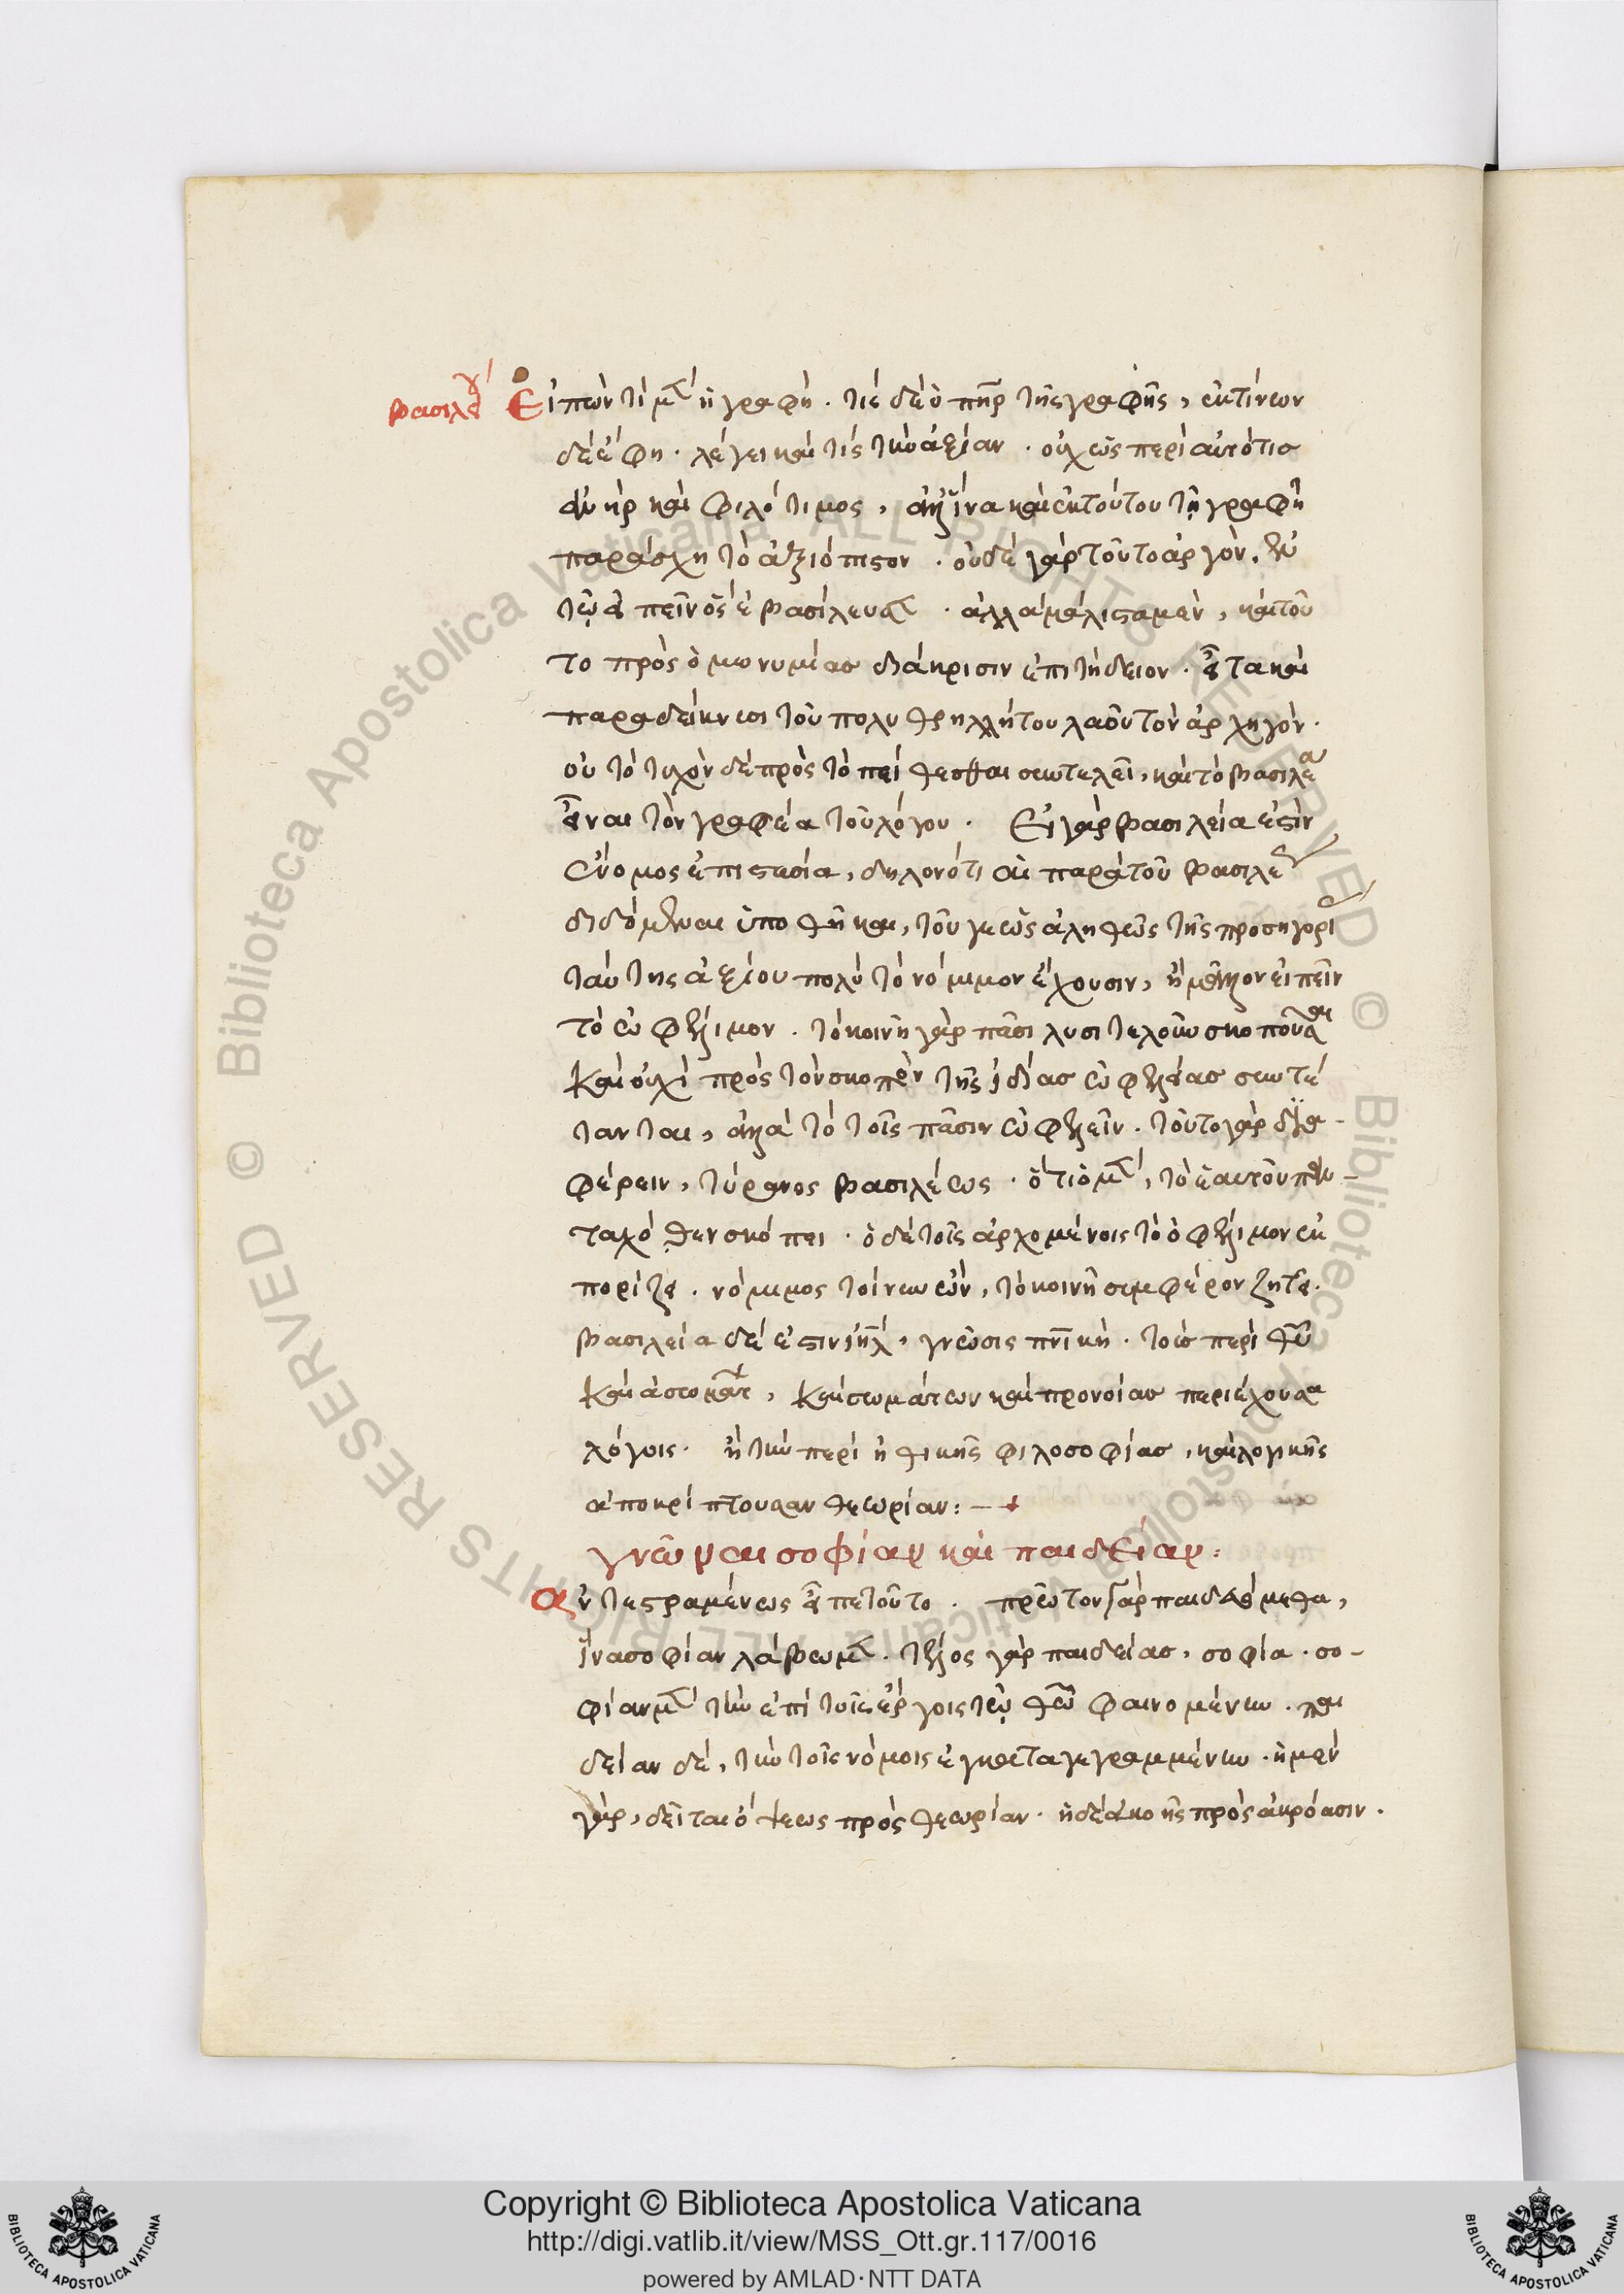 βασιλείου Εἰπὼν τί μὲν ἡ γραφή. τίς δὲ ὁ πατὴρ τῆς γραφῆς, ἐκ τίνων
δὲ ἔφη. λέγει καὶ τίς τὴν ἀξίαν. οὐχ ὡς περιαυτότις
ἀνὴρ καὶ φιλότιμος, ἀλλ' ἵνα καὶ ἐκ τούτου τῇ γραφῇ
παράσχη τὸ ἀξιόπιστον. οὐδὲ γὰρ τοῦτο ἀργὸν, ἐν
τῷ εἰπεῖν ὃς ἐβασίλευσεν. ἀλλὰ μάλιστα μὲν, καὶ τοῦ
το πρὸς ὁμωνυμίας διάκρισιν ἐπιτήδειον. εἶτα καὶ
παραδείκνυσι τοῦ πολυθρηλλήτου λαοῦ τὸν ἀρχηγόν.
οὐ τὸ τυχὸν δὲ πρὸς τὸ πείθεσθαι συντελεῖ, καὶ τὸ βασιλέα
εἶναι τὸν γραφέα τοῦ λόγου. Εἰ γὰρ βασιλεία ἐστὶν
ἔννομος ἐπιστασία, δηλονότι αἱ παρὰ τοῦ βασιλέως
διδόμεναι ὑποθῆκαι, τοῦ γε ὡς ἀληθῶς τῆς προσηγορίας
ταύτης ἀξίου πολὺ τὸ νόμιμον ἔχουσιν, ἢ μᾶλλον εἰπεῖν
τὸ ὠφέλιμον. τὸ κοινῇ γὰρ πᾶσι λυσιτελοῦν σκοποῦσαι
καὶ οὐχὶ πρὸς τὸν σκοπὸν τῆς ἰδίας ὠφελείας συντέ
τανται, ἀλλὰ τὸ τοῖς πᾶσιν ὠφελεῖν. τοῦτο γὰρ δια-
φέρειν, τύρανος βασιλέως. ὅτι ὁ μὲν, τὸ ἑαυτοῦ παν-
ταχόθεν σκόπει. ὁ δὲ τοῖς ἀρχομένοις τὸ ὀφέλιμον ἐκ
πορίζει. νόμιμος τοίνυν ὢν, τὸ κοινῇ συμφέρον ζητεῖ.
βασιλεία δέ ἐστιν ιηλ, γνῶσις πνικὴ. τοὺς περὶ θυ
καὶ ἀσωμάτων, καὶ σωμάτων καὶ προνοίας περιέχουσα
λόγοις. ἢ τὴν περὶ ἠθικῆς φιλοσοφίας, καὶ λογικῆς
ἀποκρίπτουσαν θεωρίαν: — +
γνῶναι σοφίαν καὶ παιδείαν:
ἀντεστραμένως εἶπε τοῦτο. πρῶτον γὰρ παιδευόμεθα,
ἵνα σοφίαν λάβωμεν. τέλος γὰρ παιδείας, σοφία. σο-
φίαν μὲν τὴν ἐπὶ τοῖς ἔργοις τῷ θῶ φαινομένην. παι
δείαν δὲ, τὴν τοῖς νόμοις ἐγκαταγεγραμμένην. ἡ μὲν
γὰρ, δεῖται ὄψεως πρὸς θεωρίαν. ἡ δὲ ἀκοῆς πρὸς ἀκρόασιν.
Copyright © Biblioteca Apostolica Vaticana
http://digi.vatlib.it/view/MSS_Ott.gr.117/0016
powered by AMLAD·NTT DATA